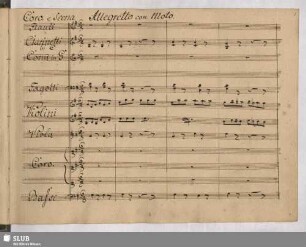 Coro e Scena Allegretto con Moto.
Flauti
Clarinetti
Corni in F
Fagotti
Violini
Viola
Coro.
Bassi
SLUB